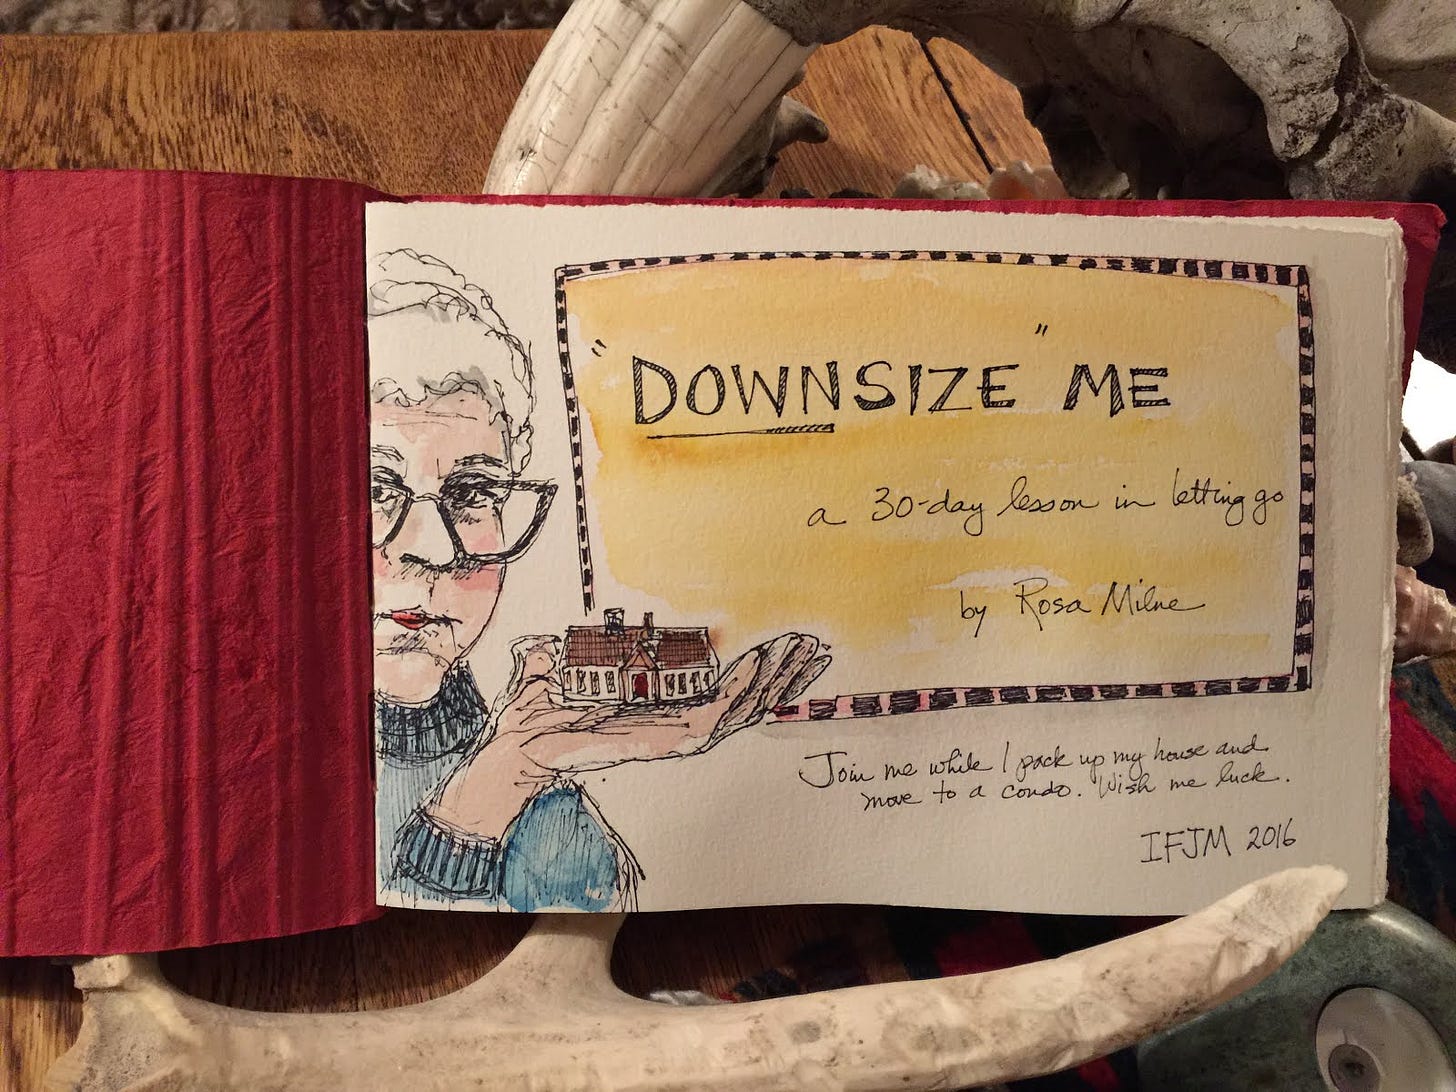 "DOWNSIZE" ME
a 30-day lesson in letting go
by Rosa Milne
Join me while I pack up my house and
move to a condo. Wish me luck.
IFJM 2016